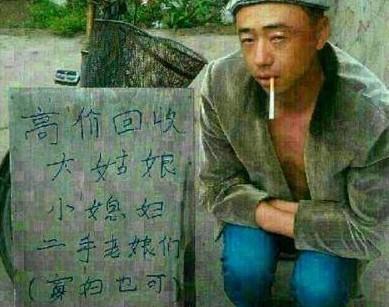 高价回收
大姑娘
小媳妇
二手老娘们
(寡妇也可)